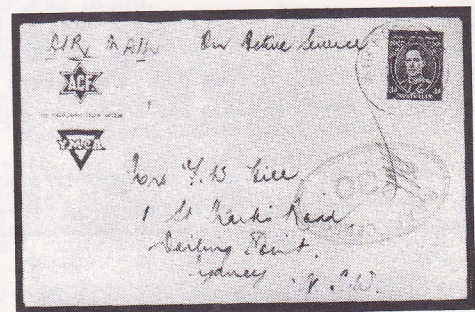 AIR MAIL On Active Service
ACF
YMCA
AUSTRALIA
Mrs F. B. Gill
1 St Marks Road
Darling Point.
Sydney N.S.W.